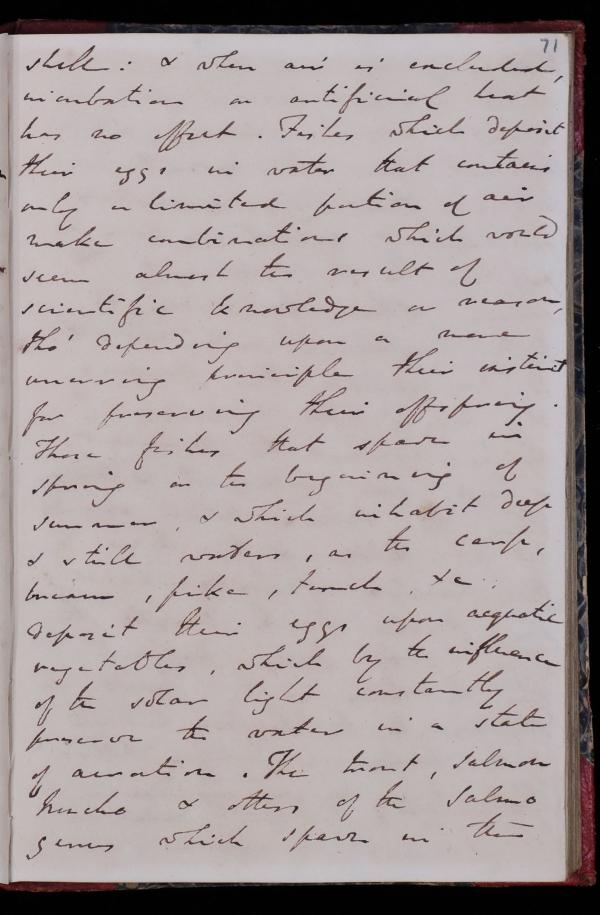 71
shell: & when air is excluded,
incubation or artificial heat
has no effect. Fishes which deposit
their eggs in water that contains
only a limited portion of air
make combinations which would
seem almost the result of
scientific knowledge or reason,
tho' depending upon a more
unerring principle their instinct
for preserving their offspring.
Those fishes that spawn in
spring or the beginning of
summer, & which inhabit deep
& still waters, as the carp,
bream, pike, tench &c.
deposit their eggs upon aequatic
vegetables, which by the influence
of the solar light constantly
preserve the water in a state
of aeration. The trout, salmon
hucho & others of the Salmo
genus which spawn in the